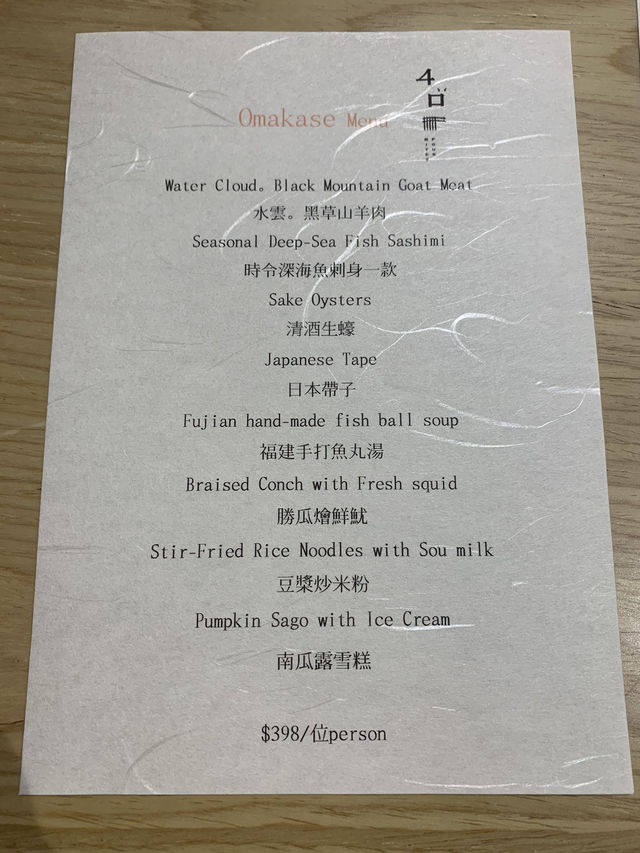 4口
Omakase Menu
Water Cloud。Black Mountain Goat Meat
水雲。黑草山羊肉
Seasonal Deep-Sea Fish Sashimi
時令深海魚刺身一款
Sake Oysters
清酒生蠔
Japanese Tape
日本帶子
Fujian hand-made fish ball soup
福建手打魚丸湯
Braised Conch with Fresh squid
勝瓜燴鮮魷
Stir-Fried Rice Noodles with Sou milk
豆漿炒米粉
Pumpkin Sago with Ice Cream
南瓜露雪糕
$398/位person